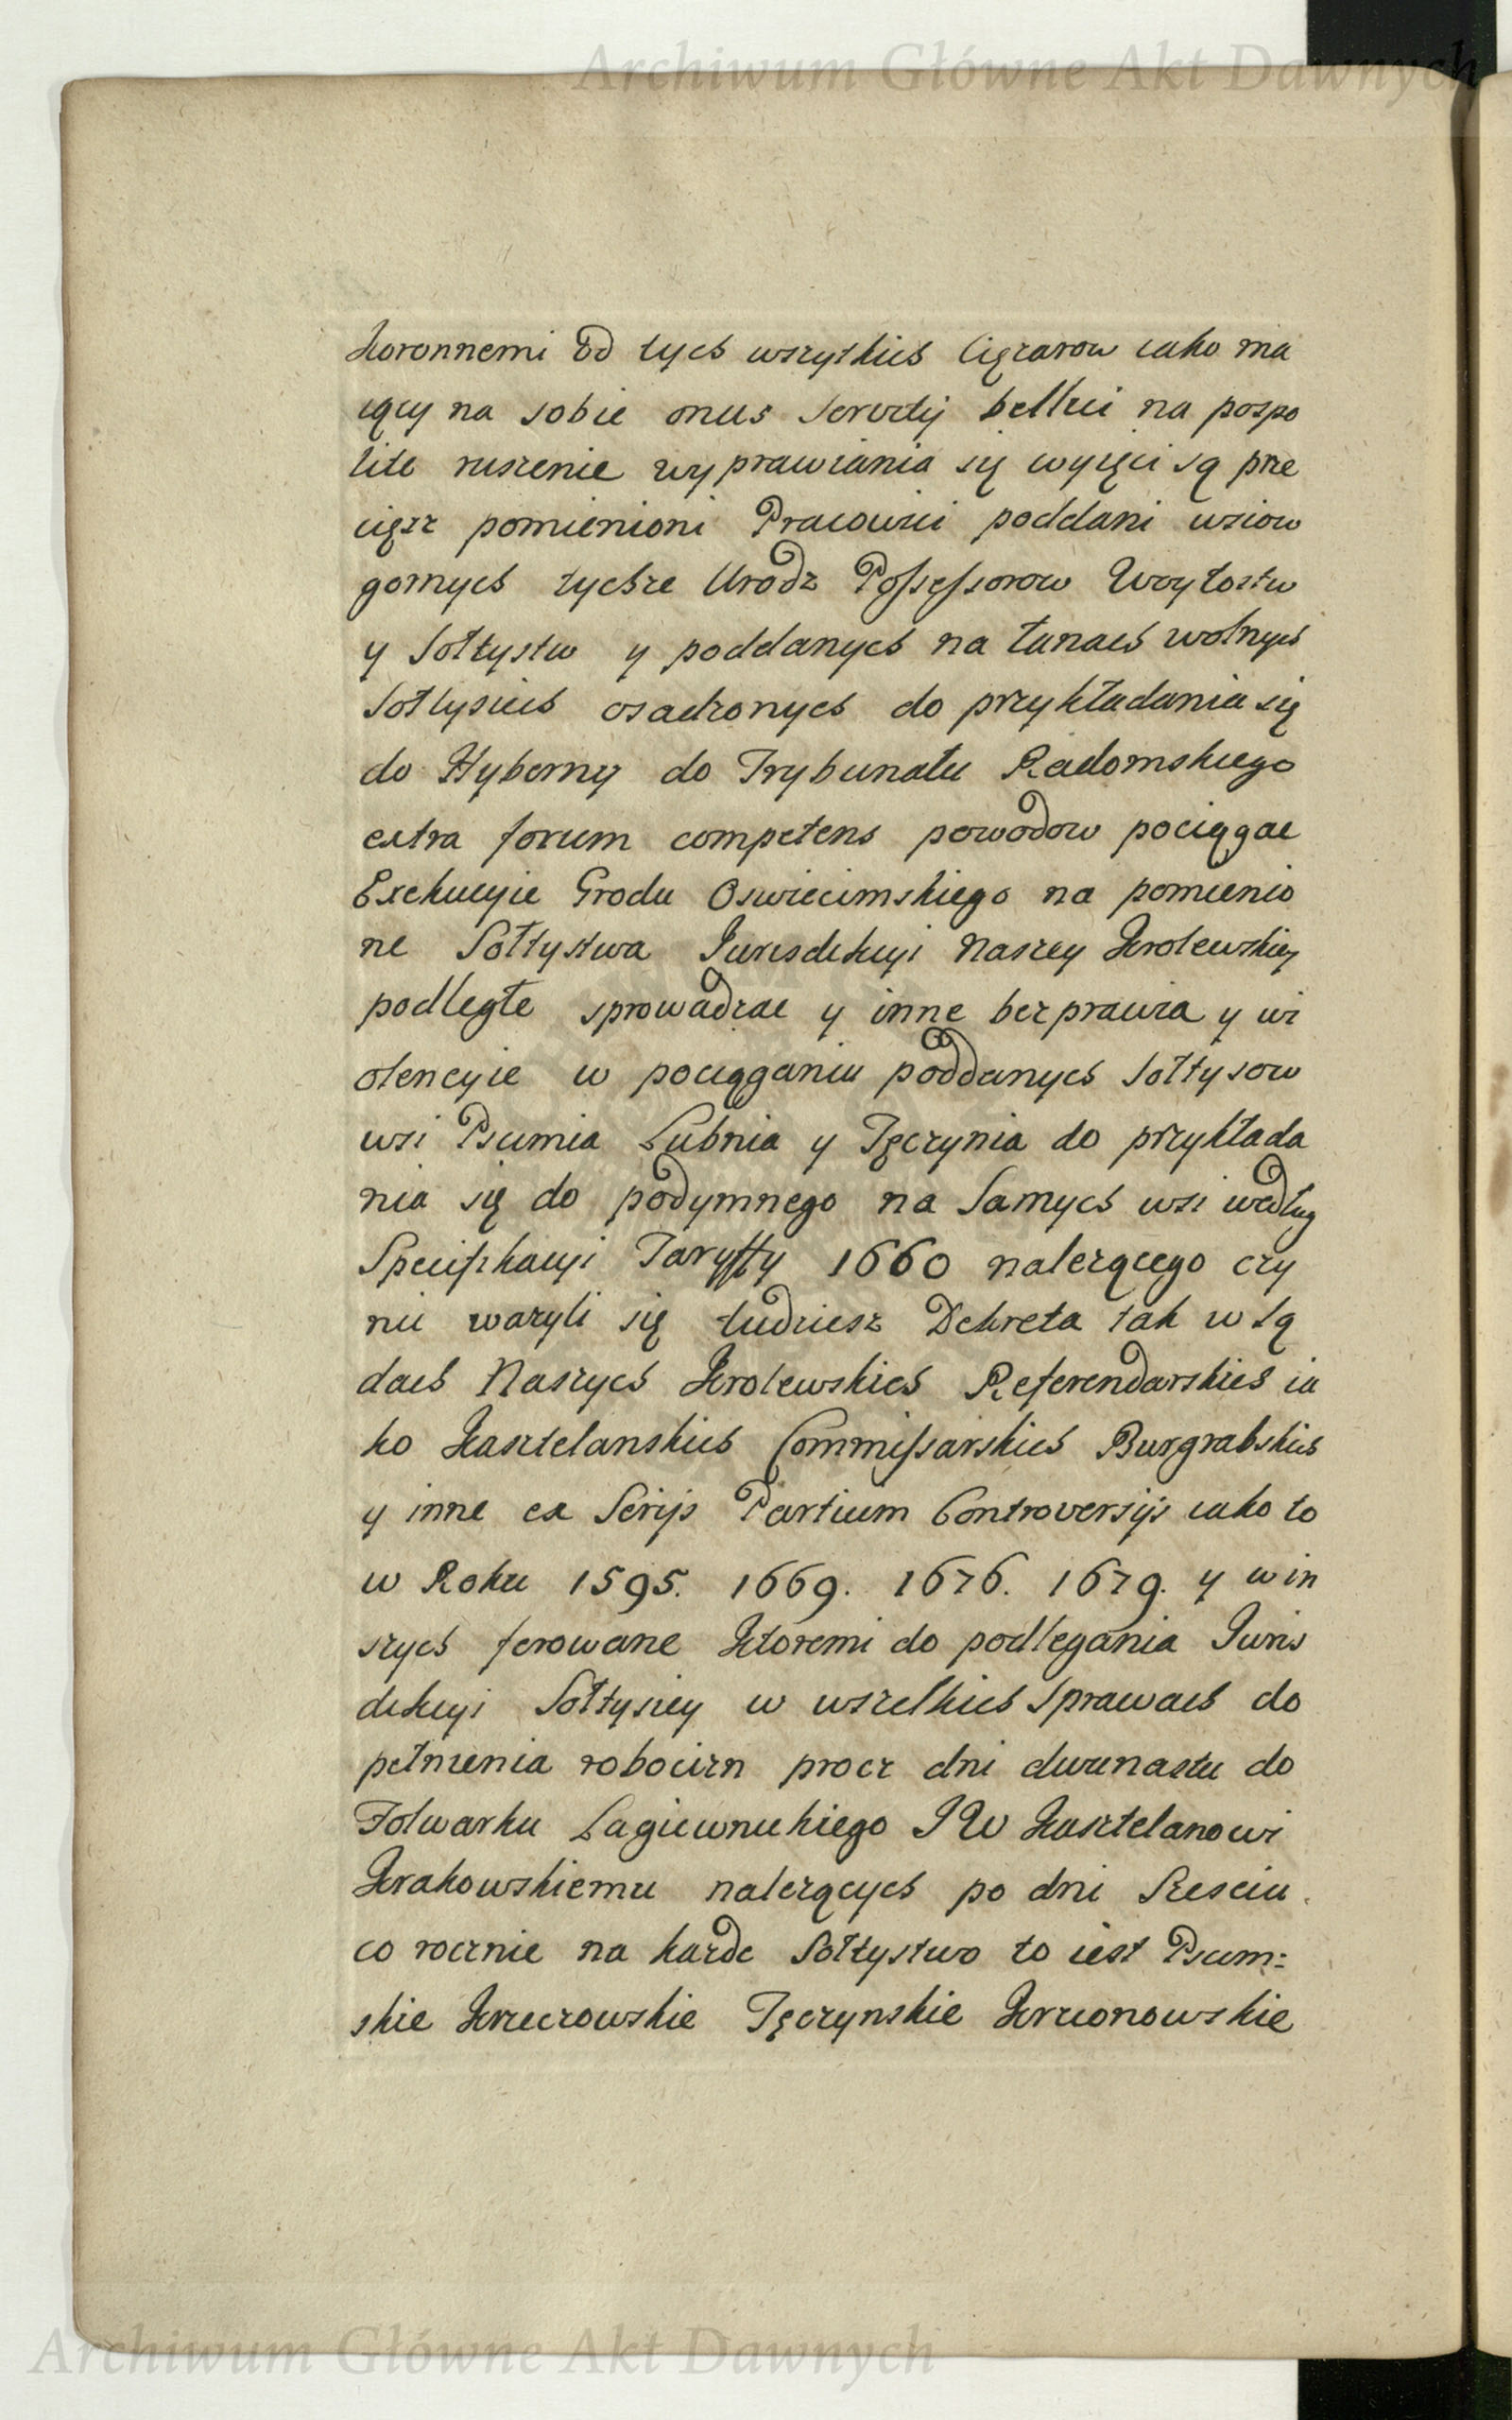 Archiwum Główne Akt Dawnych
Koronnemi od tych wszytkich Cięzarow iako ma
iący na sobie onus Servitij bellici na pospo
lite ruszenie wyprawiania się wyięci są prze
cięsz pomienioni Pracowici poddani wsiow
gornych tychze Urodz Possessorow Woytostw
y Sołtystw y poddanych na łanach wolnych
Sołtysich osadzonych do przykładania się
do Hyberny do Trybunału Radomskiego
extra forum competens powodow pociągac
Exekucyie Grodu Oswiecimskiego na pomienio
ne Sołtystwa Jurisdikcyi Naszey Krolewskiey
podległe sprowadzac y inne bezprawia y wi
olencyie w pociąganiu poddanych Sołtysow
wsi Pcimia Lubnia y Tęczynia do przykłada
nia się do podymnego na Samych wsi według
Specifikacyi Taryffy 1660 nalezącego czy
nic wazyli się tudziesz Dekreta tak w Są
dach Naszych Krolewskich Referendarskich ia
ko Kasztelanskich Commissarskich Burgrabskich
y inne ex Serijs Partium Controversijs iako to
w Roku 1595. 1669. 1676. 1679. y w in
szych ferowane Ktoremi do podlegania Juris
dikcyi Sołtysiey w wszelkich Sprawach do
pełnienia robocizn procz dni dwunastu do
Folwarku Lagiewnickiego JW Kasztelanowi
Krakowskiemu nalezących po dni Szesciu
co rocznie na kazde Sołtystwo to iest Pcim=
skie Krzeczowskie Tęczynskie Krzczonowskie
Archiwum Główne Akt Dawnych